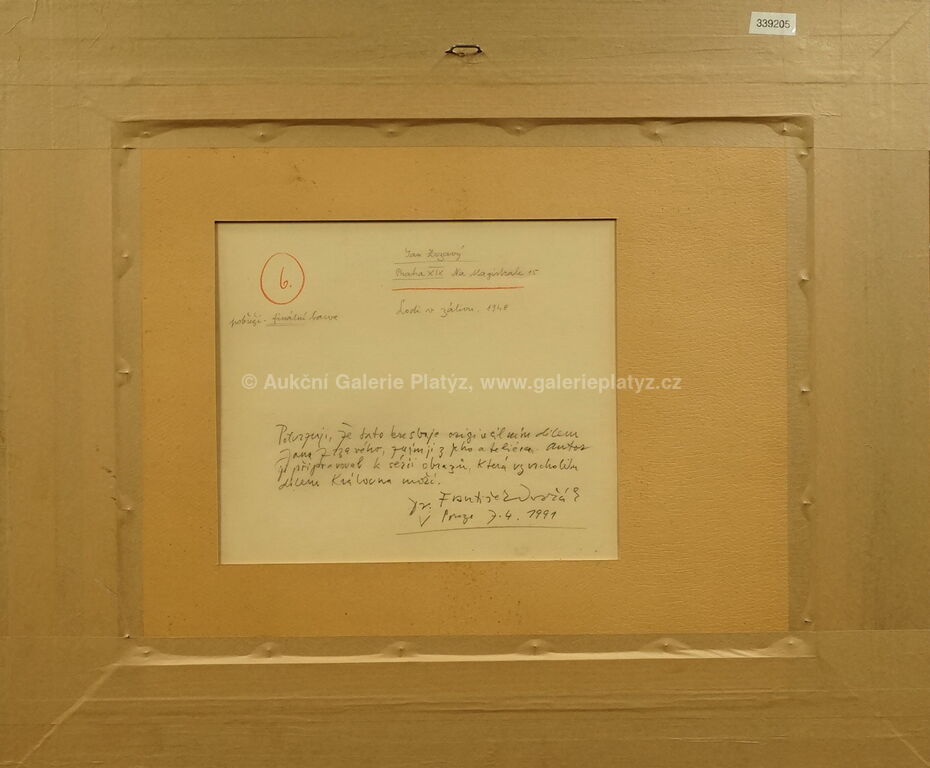 339205
6.
Jan Zrzavý
Praha XIX Na Magistrále 15
Lodi v zálivu, 1948
pobřeží - finální barva
© Aukční Galerie Platýz, www.galerieplatyz.cz
Potvrzuji, že tato kresba je originálním dílem
Jana Zrzavého, z jeho ateliéru. Autor
ji připravoval k sérii obrazů, která vyvrcholila
dílem Královna moří.
Dr. František Dvořák
V Praze 7.4.1991